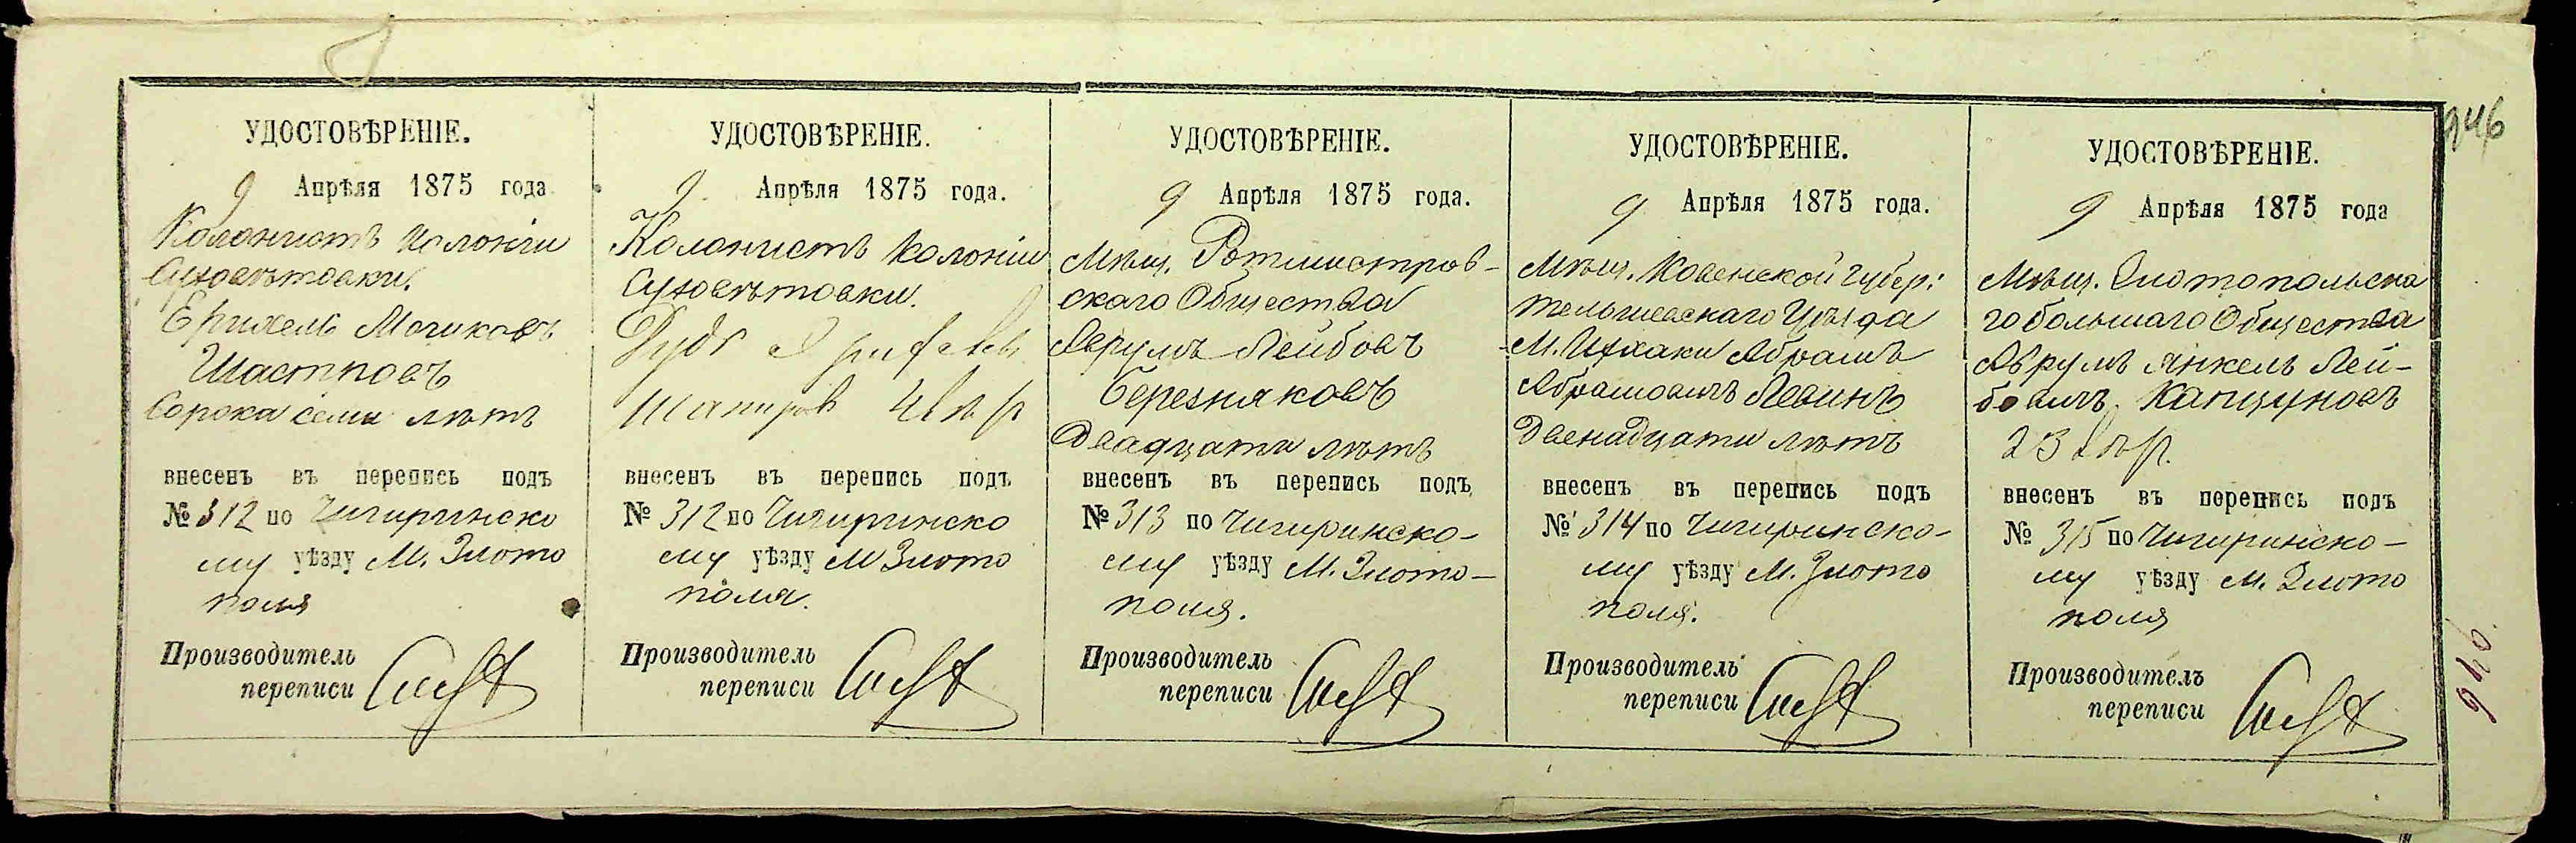 946
УДОСТОВѢРЕНІЕ.
9 Апрѣля 1875 года
Колонистъ колоніи
Ерихемъ Мошковъ
Шастновъ
Сорока семи лѣтъ
внесенъ въ перепись подъ
№ 312 по Чигиринско
му уѣзду М. Злото
поля
Производитель
переписи
УДОСТОВѢРЕНІЕ.
9 Апрѣля 1875 года.
Колонистъ колоніи
внесенъ въ перепись подъ
№ 312 по Чигиринско
му уѣзду М Злото
поля.
Производитель
переписи
УДОСТОВѢРЕНІЕ.
9 Апрѣля 1875 года.
Мѣщ. Ротмистров-
скаго Общества
Аврумъ Лейбовъ
Березняковъ
Двадцати лѣтъ
внесенъ въ перепись подъ
№ 313 по Чигиринско-
му уѣзду М. Злото-
поля.
Производитель
переписи
УДОСТОВѢРЕНІЕ.
9 Апрѣля 1875 года.
Мѣщ. Ковенской губер:
Тельшевскаго Уѣзда
М. Абрамъ
Абрамовичъ Левинъ
Двенадцати лѣтъ
внесенъ въ перепись подъ
№ 314 по Чигиринско-
му уѣзду М. Злото
поля.
Производитель
переписи
УДОСТОВѢРЕНІЕ.
9 Апрѣля 1875 года
Мѣщ. Златопольска
го большаго Общества
Аврумъ Янкель Лей-
бовичъ Капцуновъ
23 лѣт.
внесенъ въ перепись подъ
№ 315 по Чигиринско-
му уѣзду М. Злото
поля
Производитель
переписи
946